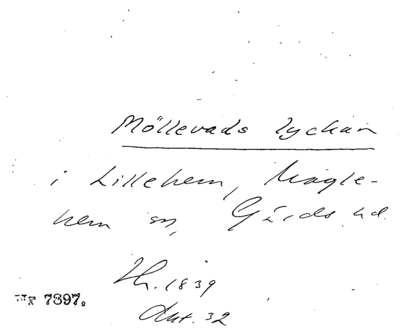 Möllevads lyckan
i Lillehem, Magle-
hem sn, Gärds hd.
Th. 1839
Ant. 32
7897.